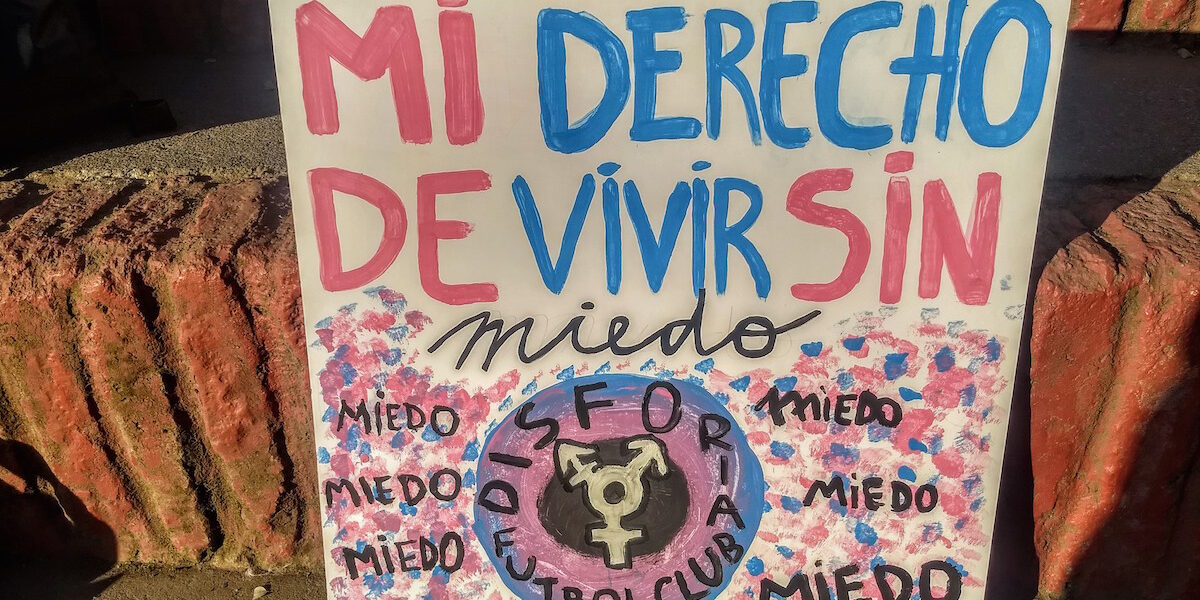 Mi DERECHO
DE ViViR SiN
miedo
MiEDO
MiEDO
MiEDO
MiEDO
MiEDO
MiEDO
DISFORIA
FUTBOL CLUB